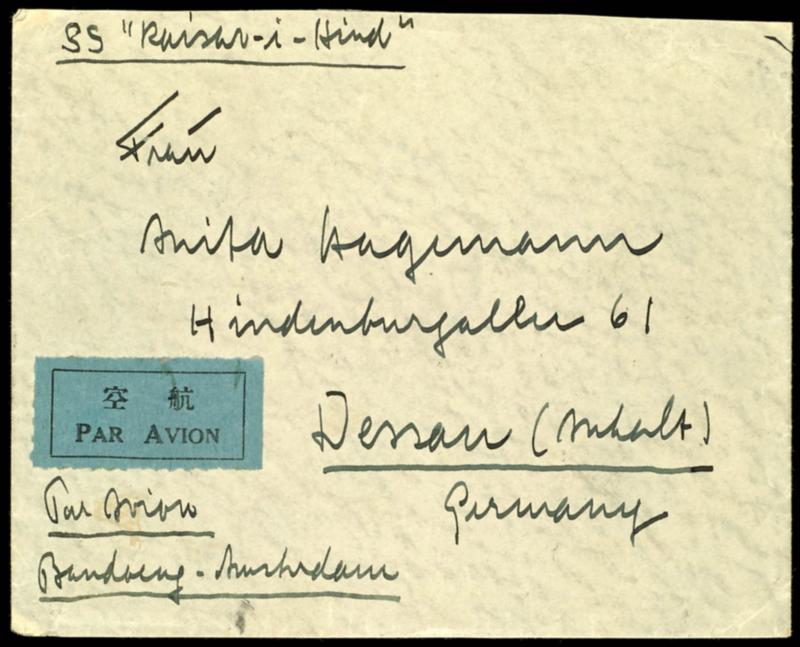 SS "Kaisar-i-Hind"
Frau
Anita Hagemann
Hindenburgallee 61
空 航
PAR AVION
Dessau (Anhalt)
Germany
Par Avion
Bandoeng - Amsterdam